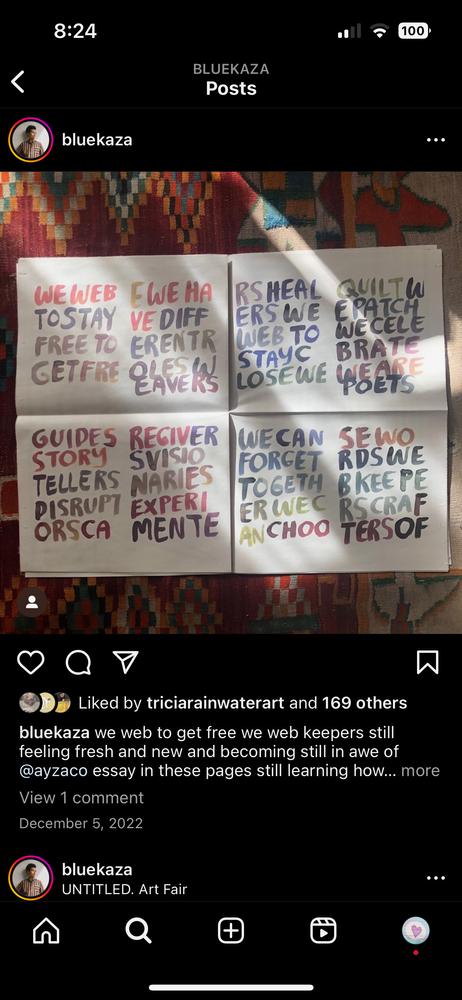 8:24
100
BLUEKAZA
Posts
bluekaza
WE WEB
TO STAY
FREE TO
GET FRE
E WE HA
VE DIFF
ERENT R
OLES W
EAVERS
RS HEAL
ERS WE
WEB TO
STAY C
LOSE WE
QUILT W
E PATCH
WE CELE
BRATE
WE ARE
POETS
GUIDES
STORY
TELLERS
DISRUPT
ORS CA
REGIVER
S VISIO
NARIES
EXPERI
MENTE
WE CAN
FORGET
TOGETH
ER WE C
AN CHOO
SE WO
RDS WE
B KEEPE
RS CRAF
TERS OF
Liked by triciarainwaterart and 169 others
bluekaza we web to get free we web keepers still
feeling fresh and new and becoming still in awe of
@ayzaco essay in these pages still learning how... more
View 1 comment
December 5, 2022
bluekaza
UNTITLED. Art Fair